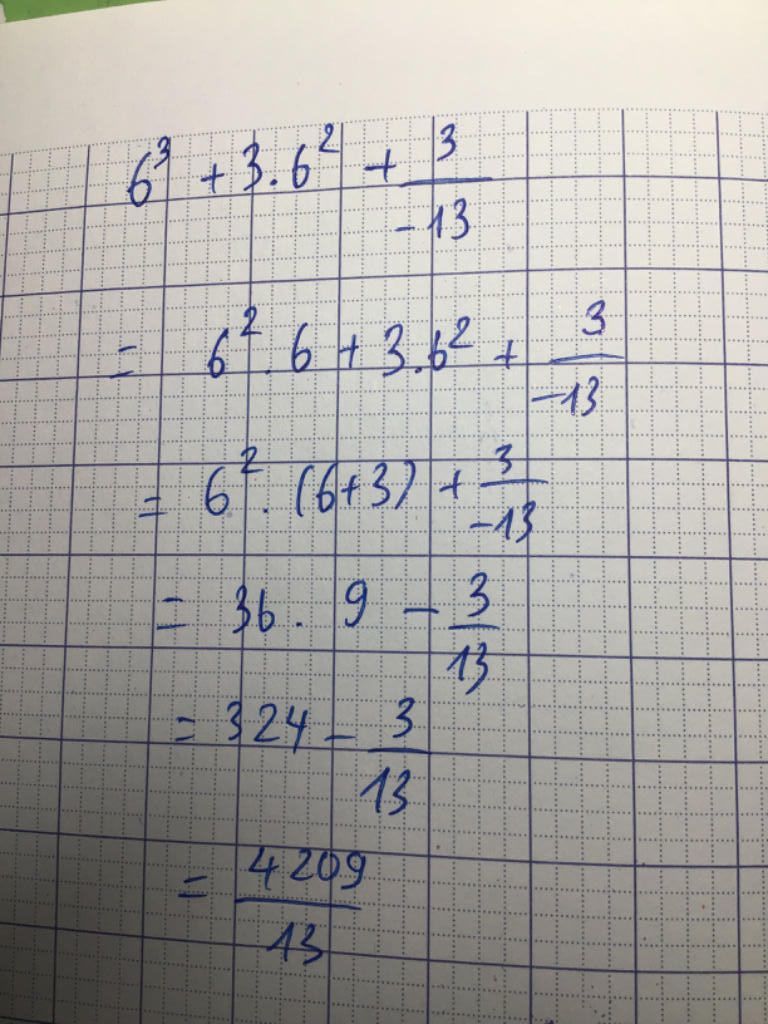 6³ + 3.6² + 3/-13
= 6².6 + 3.6² + 3/-13
= 6².(6+3) + 3/-13
= 36.9 - 3/13
= 324 - 3/13
= 4209/13